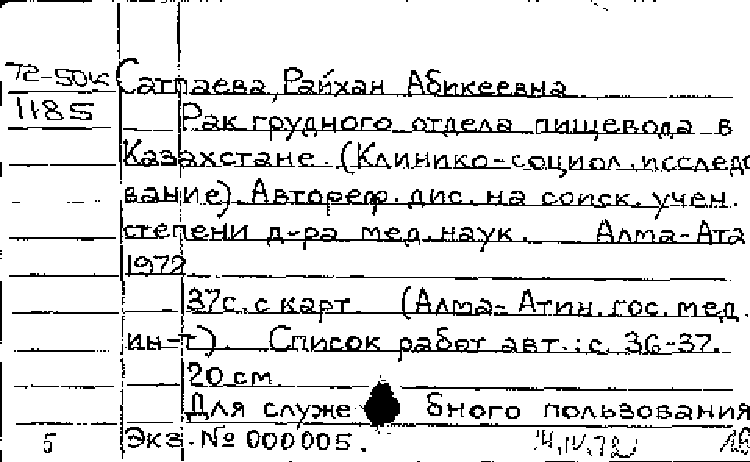 72-50к Сатпаева, Райхан Абикеевна
1185 Рак грудного отдела пищевода в
Казахстане. (Клинико-социол. исследо
вание). Автореф. дис. на соиск. учен.
степени д-ра мед. наук. Алма-Ата
1972
37с. с карт. (Алма-Атин. гос. мед.
ин-т). Список работ авт.: с. 36-37.
20 см.
Для служебного пользования
5 Экз. № 000005. 14.IV.72